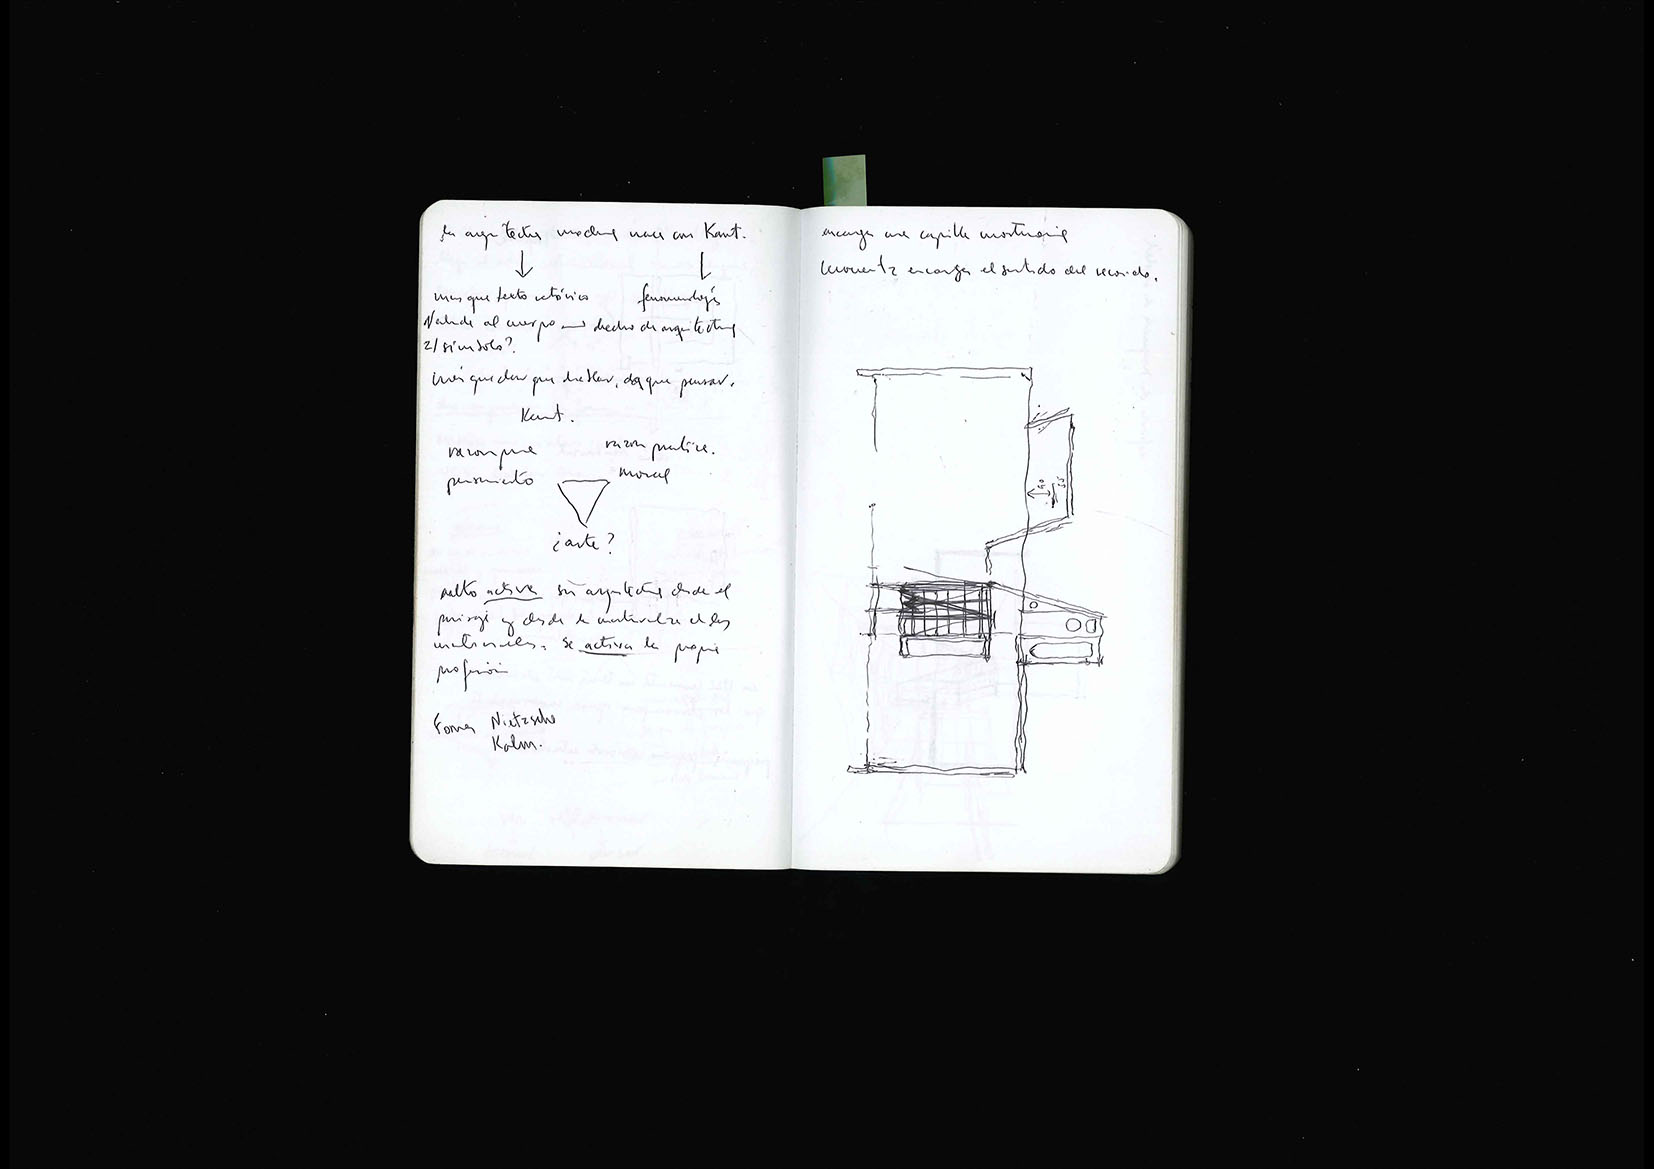 la arquitectura moderna nace con Kant.
mas que texto retórico fenomenología
al cuerpo hecho de arquitectura
2/ símbolo?
más que dar que hablar, da que pensar.
Kant.
razon pura razon practica.
pensamiento moral
¿arte?
aalto activa su arquitectura desde el
paisaje y desde la naturaleza de los
materiales. se activa la propia
profesión
Nietzsche
Kahn.
encarga una capilla mortuoria
encarga el sentido del recorrido.
40
55